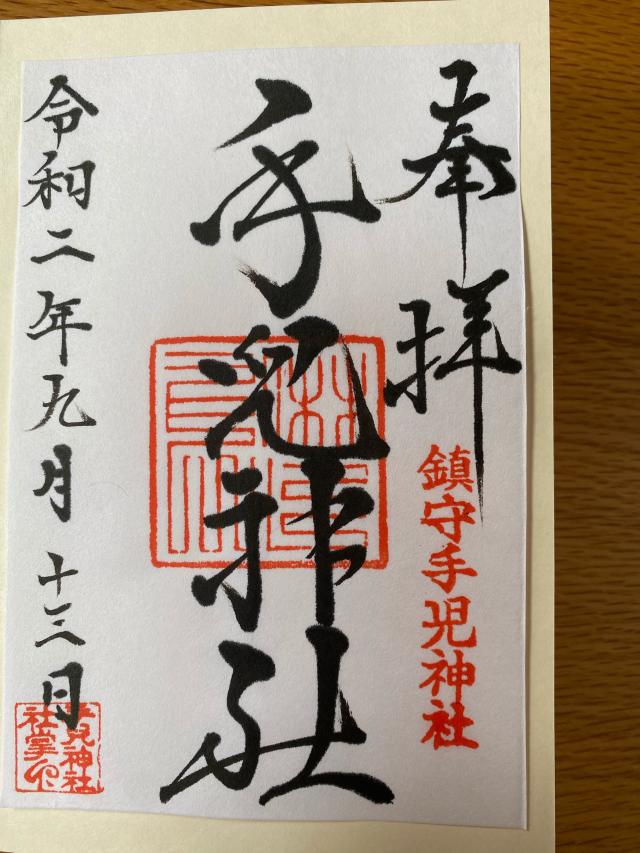 奉拝
鎮守手児神社
手児神社
令和二年九月十三日
手児神社
社掌之印